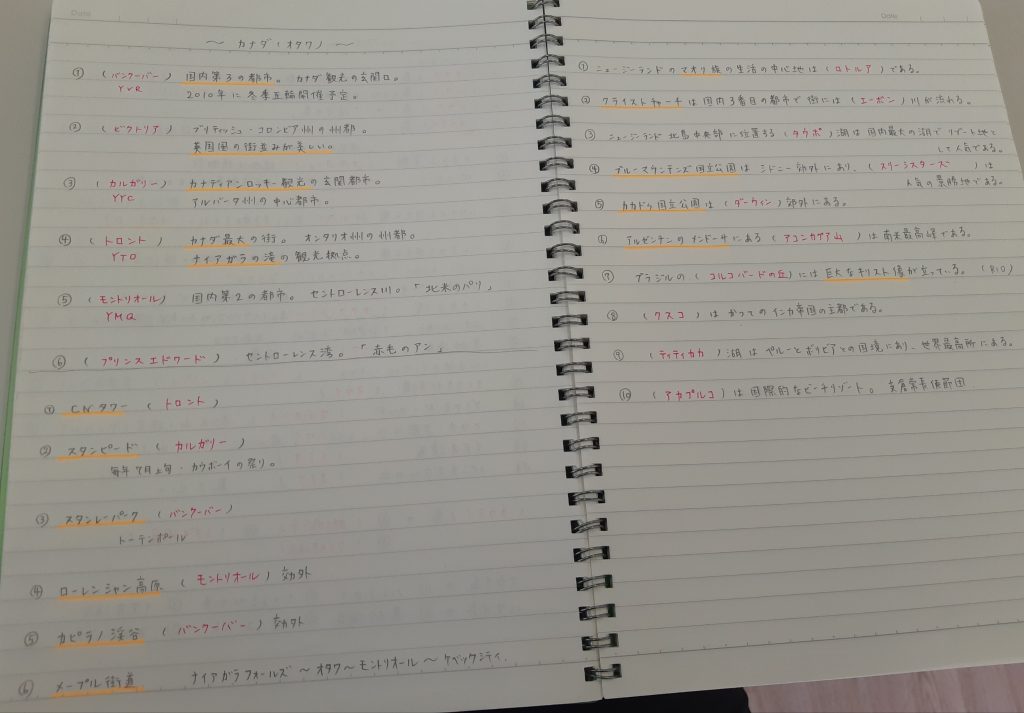 Date
～ カナダ(オタワ) ～
① (バンクーバー) 国内第3の都市。カナダ観光の玄関口。
YVR 2010年に冬季五輪開催予定。
② (ビクトリア) ブリティッシュ・コロンビア州の州都。
英国風の街並みが美しい。
③ (カルガリー) カナディアンロッキー観光の玄関都市。
YYC アルバータ州の中心都市。
④ (トロント) カナダ最大の街。オンタリオ州の州都。
YTO ナイアガラの滝の観光拠点。
⑤ (モントリオール) 国内第2の都市。セントローレンス川。「北米のパリ」
YMQ
⑥ (プリンスエドワード) セントローレンス湾。「赤毛のアン」
① CNタワー (トロント)
② スタンピード (カルガリー)
毎年7月上旬・カウボーイの祭り。
③ スタンレーパーク (バンクーバー)
トーテンポール
④ ローレンシャン高原 (モントリオール) 効外
⑤ カピラノ渓谷 (バンクーバー) 効外
⑥ メープル街道 ナイアガラフォールズ～オタワ～モントリオール～ケベックシティ.
Date
① ニュージーランドのマオリ族の生活の中心地は(ロトルア)である。
② クライストチャーチは国内3番目の都市で街には(エーボン)川が流れる。
③ ニュージーランド北島中央部に位置する(タウポ)湖は国内最大の湖でリゾート地と
して人気である。
④ ブルーマウンテンズ国立公園はシドニー郊外にあり、(スリーシスターズ)は
人気の景勝地である。
⑤ カカドゥ国立公園は(ダーウィン)郊外にある。
⑥ アルゼンチンのメンドーサにある(アコンカグア山)は南米最高峰である。
⑦ ブラジルの(コルコバードの丘)には巨大なキリスト像が立っている。(RIO)
⑧ (クスコ)はかつてのインカ帝国の主都である。
⑨ (ティティカカ)湖はペルーとボリビアとの国境にあり、世界最高所にある。
⑩ (アカプルコ)は国際的なビーチリゾート。支倉常長像